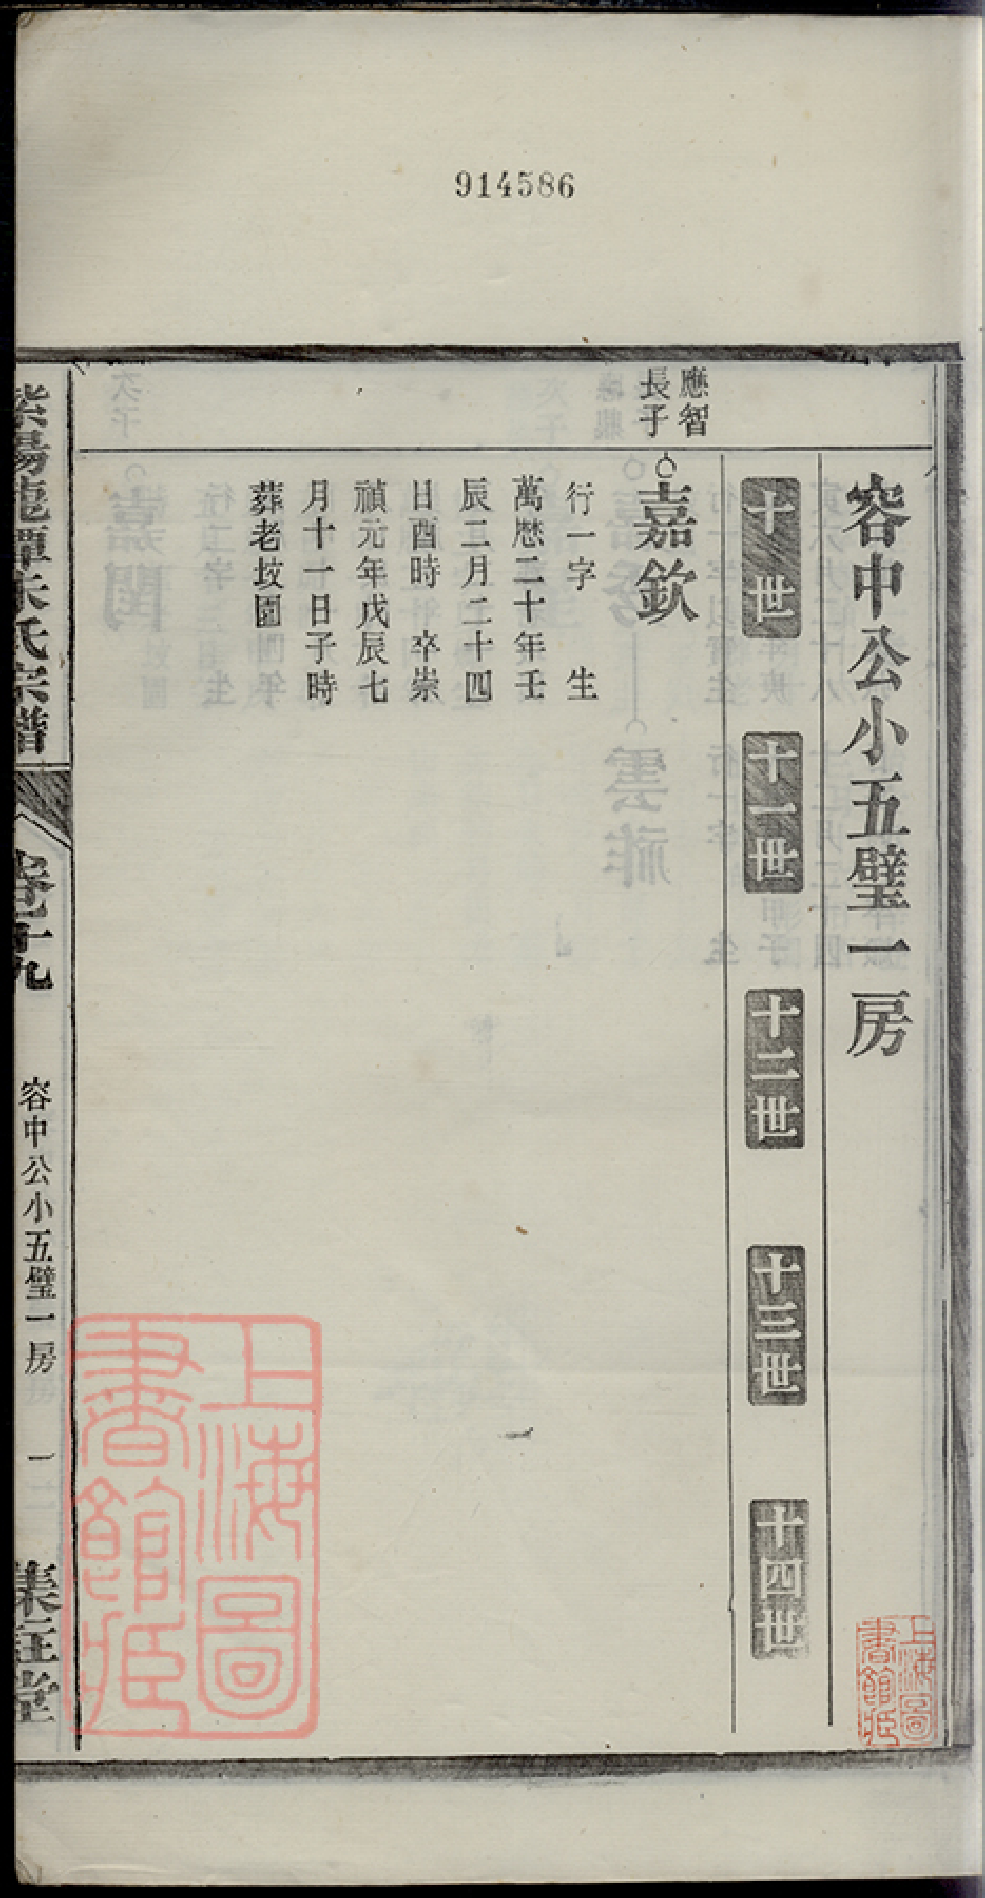 914586
容中公小五璧一房
十世
十一世
十二世
十三世
十四世
應智
長子
嘉欽
行一字 生
萬厯二十年壬
辰二月二十四
日酉時 卒崇
禎元年戊辰七
月十一日子時
葬老坟園
紫陽龍潭朱氏宗譜
卷十九
容中公小五璧一房
一
上海圖
書館藏
上海圖
書館藏